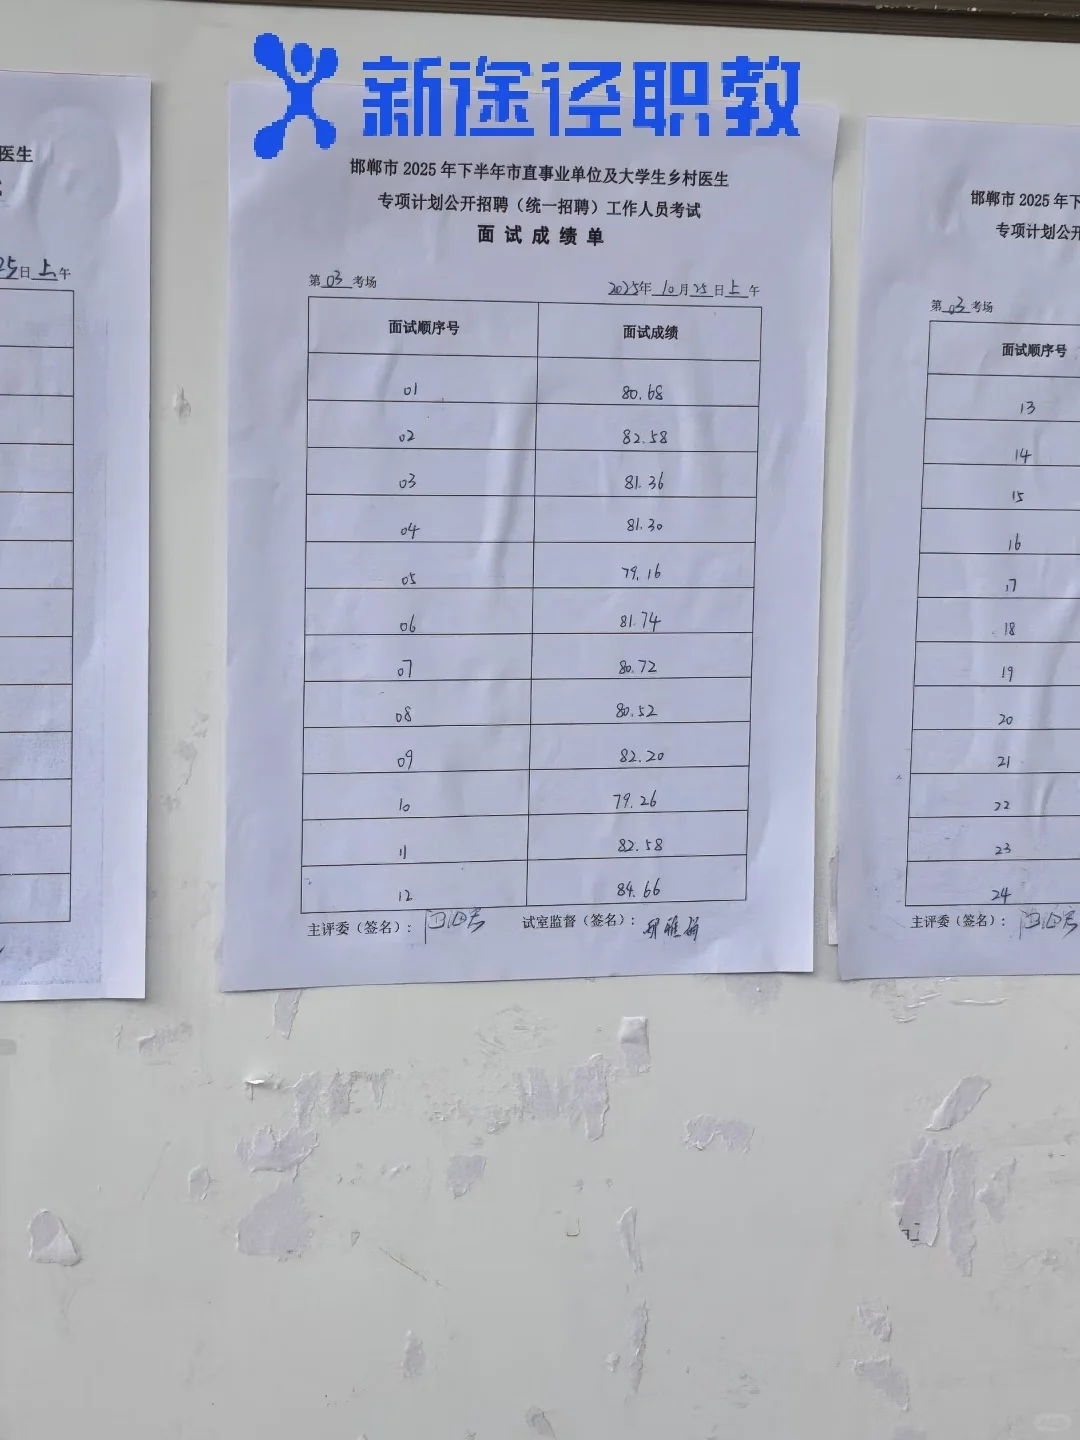 新途径职教
医生
25日上午
邯郸市 2025 年下半年市直事业单位及大学生乡村医生
专项计划公开招聘（统一招聘）工作人员考试
面试成绩单
第 03 考场 2025年 10 月 25 日 上 午
面试顺序号 面试成绩
01 80.68
02 82.58
03 81.36
04 81.30
05 79.16
06 81.74
07 80.72
08 80.52
09 82.20
10 79.26
11 82.58
12 84.66
主评委（签名）： 试室监督（签名）：
邯郸市 2025 年下
专项计划公开
第 03 考场
面试顺序号
13
14
15
16
17
18
19
20
21
22
23
24
主评委（签名）：